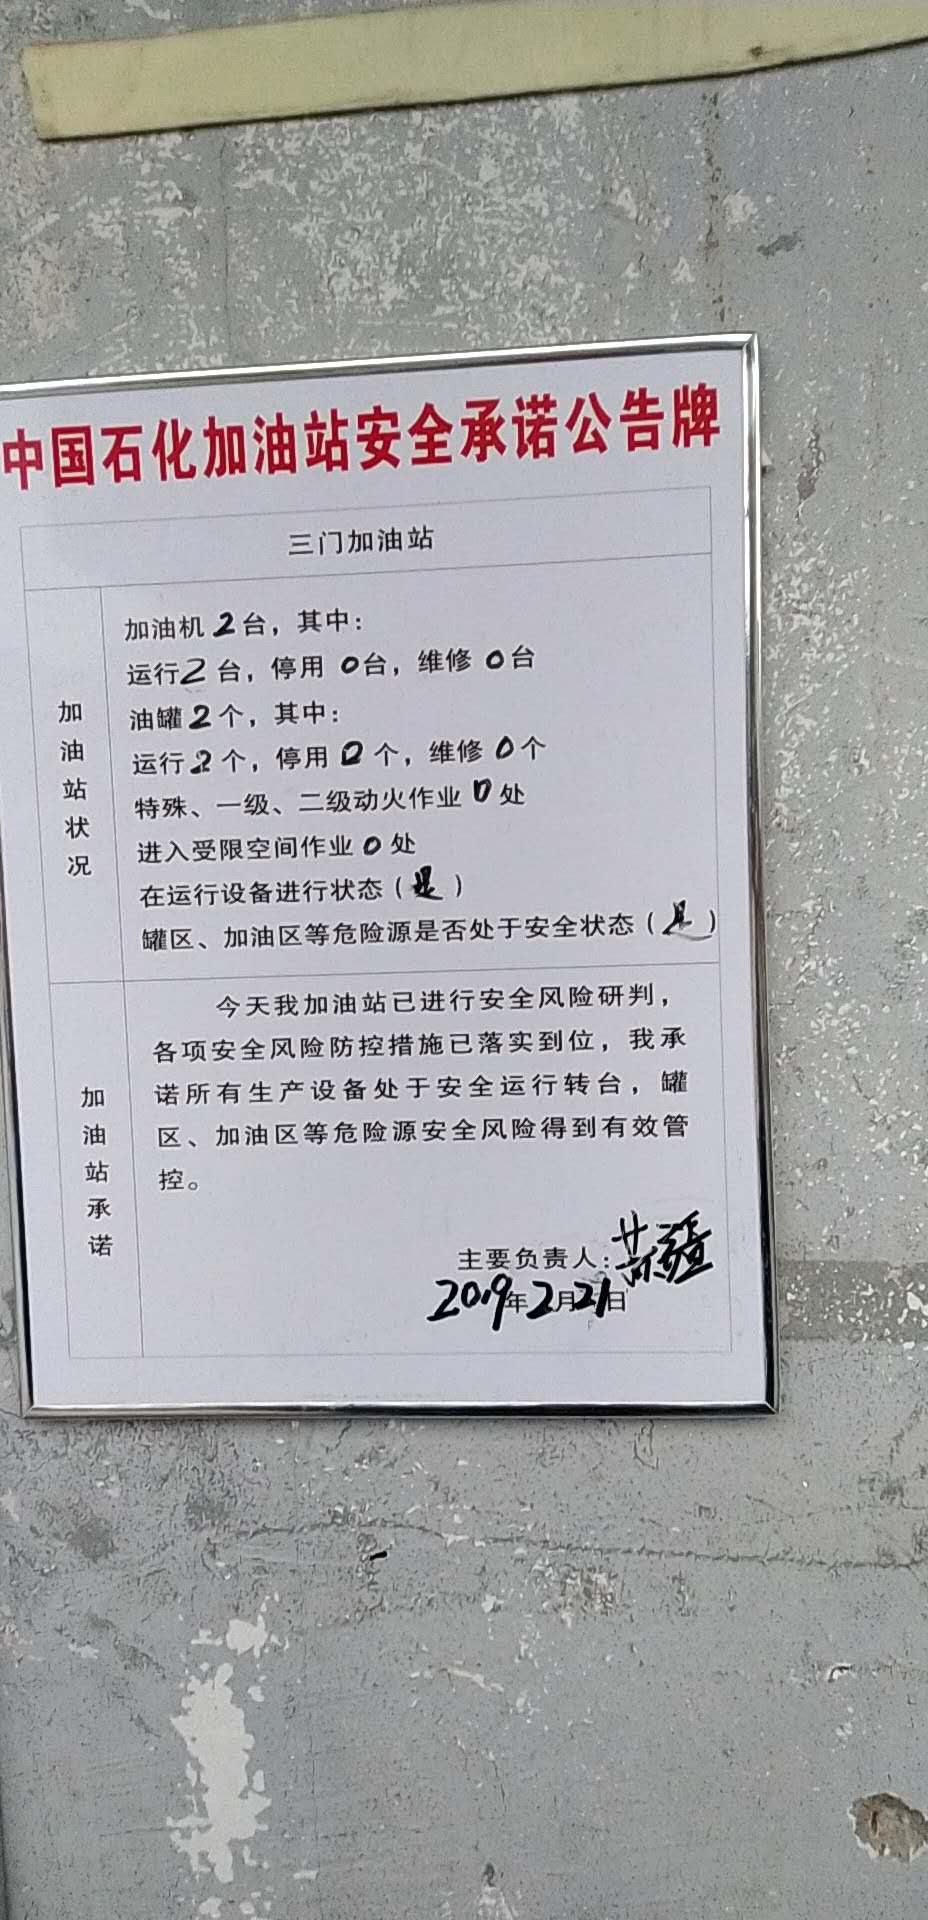 中国石化加油站安全承诺公告牌
三门加油站
加油站状况
加油机2台，其中：
运行2台，停用0台，维修0台
油罐2个，其中：
运行2个，停用0个，维修0个
特殊、一级、二级动火作业0处
进入受限空间作业0处
在运行设备进行状态（是）
罐区、加油区等危险源是否处于安全状态（是）
加油站承诺
今天我加油站已进行安全风险研判，
各项安全风险防控措施已落实到位，我承
诺所有生产设备处于安全运行转台，罐
区、加油区等危险源安全风险得到有效管
控。
主要负责人：
2019年2月21日